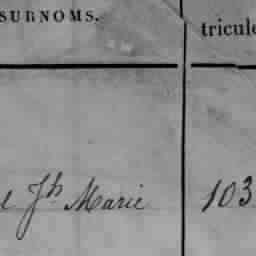 SURNOMS.
tricule
l Jh Marie 103